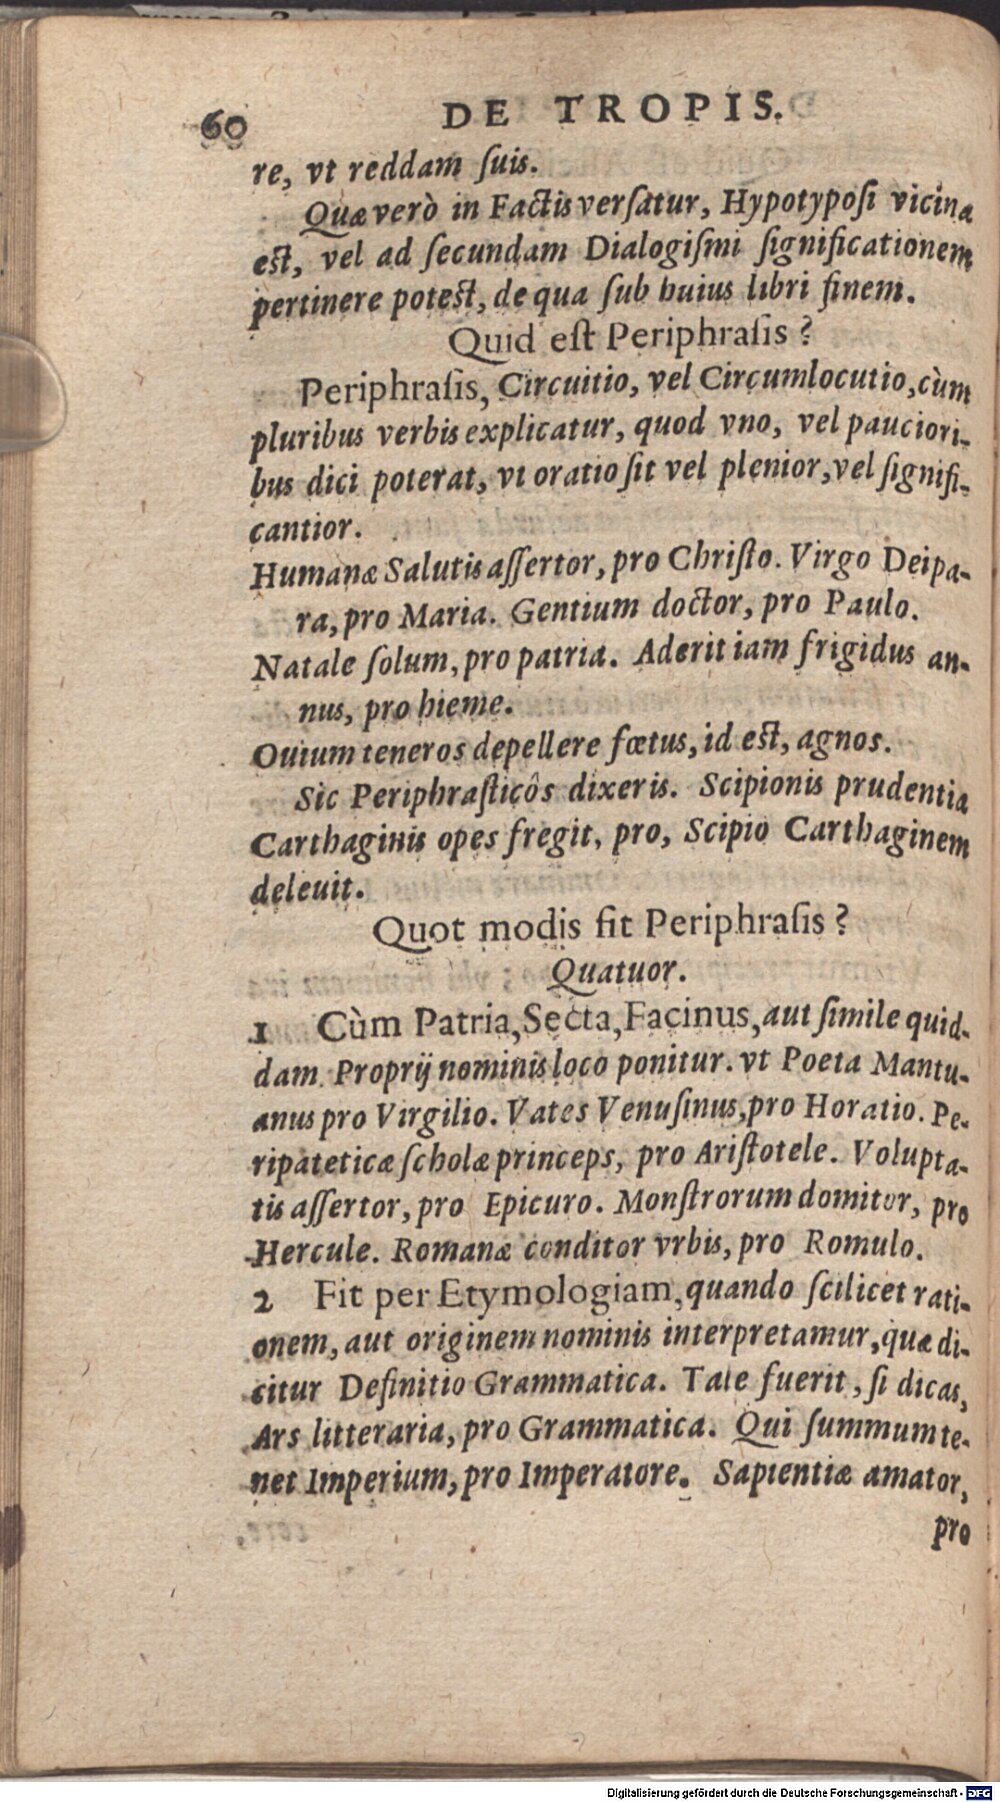 60 DE TROPIS.
re, vt reddam ſuis.
Quæ verò in Factis verſatur, Hypotypoſi vicina
est, vel ad ſecundam Dialogiſmi ſignificationem
pertinere potest, de qua ſub huius libri finem.
Quid eſt Periphraſis ?
Periphraſis, Circuitio, vel Circumlocutio, cùm
pluribus verbis explicatur, quod vno, vel pauciori-
bus dici poterat, vt oratio ſit vel plenior, vel ſignifi-
cantior.
Humanæ Salutis aſſertor, pro Chriſto. Virgo Deipa-
ra, pro Maria. Gentium doctor, pro Paulo.
Natale ſolum, pro patria. Aderit iam frigidus an-
nus, pro hieme.
Ouium teneros depellere fœtus, id est, agnos.
Sic Periphraſticôs dixeris. Scipionis prudentia
Carthaginis opes fregit, pro, Scipio Carthaginem
deleuit.
Quot modis fit Periphraſis ?
Quatuor.
1 Cùm Patria, Secta, Facinus, aut ſimile quid-
dam Proprij nominis loco ponitur. vt Poeta Mantu-
anus pro Virgilio. Vates Venuſinus, pro Horatio. Pe-
ripateticæ ſcholæ princeps, pro Ariſtotele. Volupta-
tis aſſertor, pro Epicuro. Monſtrorum domitor, pro
Hercule. Romanæ conditor vrbis, pro Romulo.
2 Fit per Etymologiam, quando ſcilicet rati-
onem, aut originem nominis interpretamur, quæ di-
citur Definitio Grammatica. Tale fuerit, ſi dicas,
Ars litteraria, pro Grammatica. Qui ſummum te-
net Imperium, pro Imperatore. Sapientiæ amator,
pro
Digitalisierung gefördert durch die Deutsche Forschungsgemeinschaft - DFG